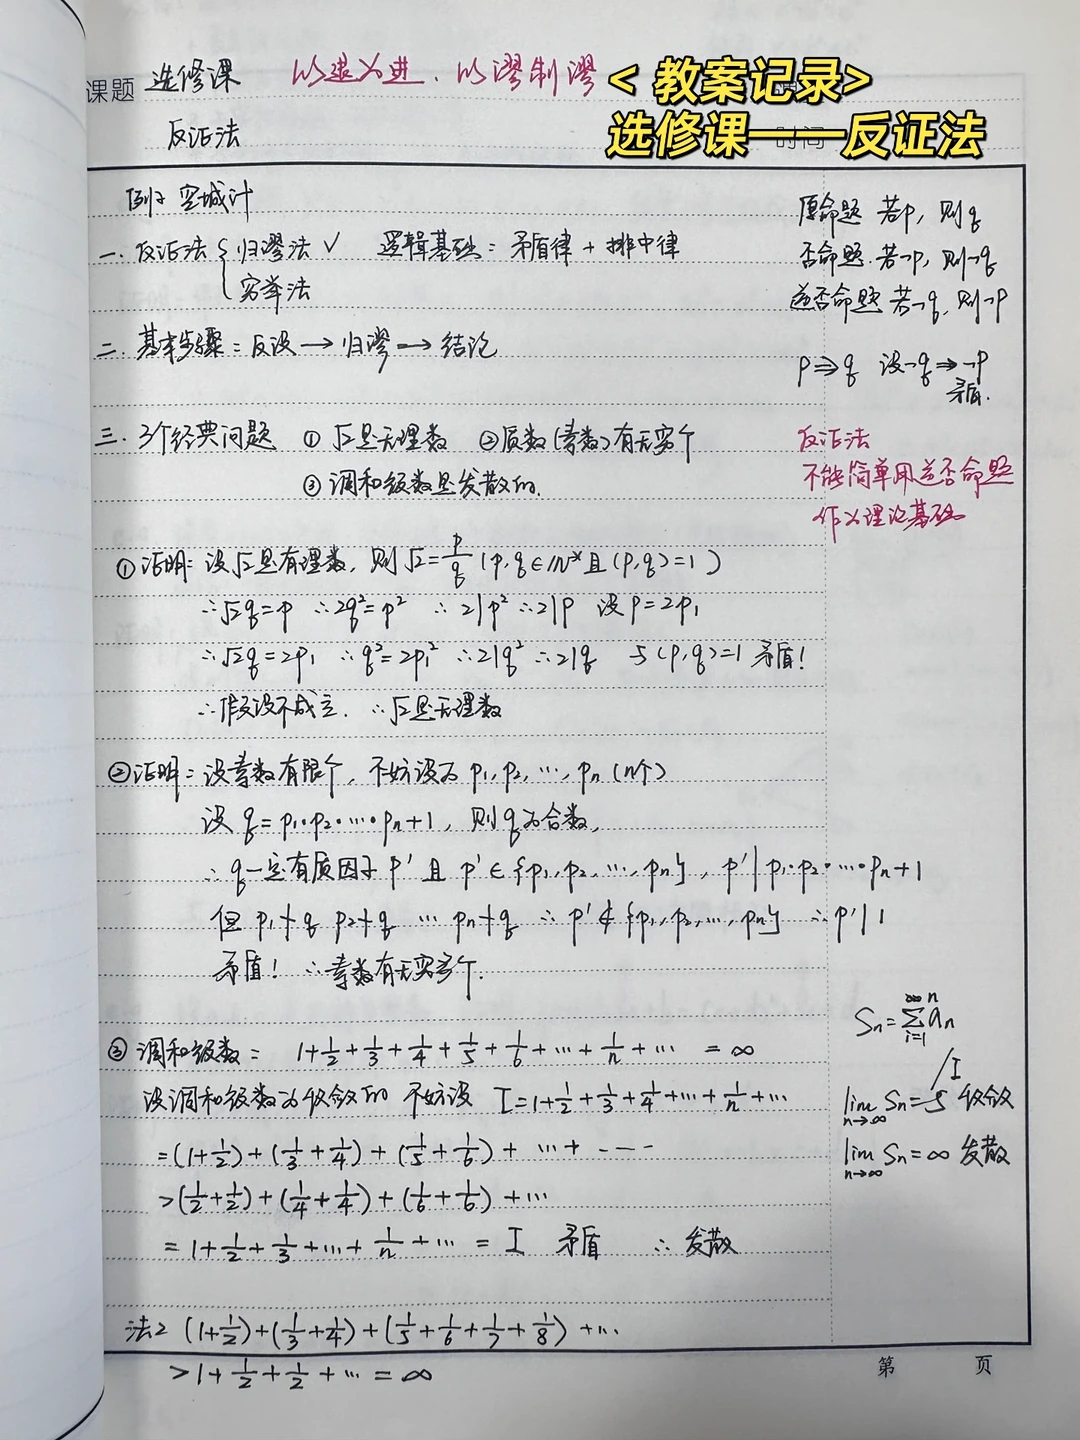 课题 选修课 以退为进、以谬制谬
<教案记录>
选修课——反证法
时间
反证法
例子 空城计
一.反证法{归谬法√ 逻辑基础:矛盾律+排中律
穷举法
二.基本步骤:反设→归谬→结论
三.3个经典问题 ①√2是无理数 ②质数(素数)有无穷个
③调和级数是发散的.
原命题 若p,则q
否命题.若¬p,则¬q
逆否命题 若¬q,则¬p
p⇒q 设¬q⇒¬p
矛盾.
反证法
不能简单用逆否命题
作为理论基础
①证明:设√2是有理数,则√2=p/q(p,q∈N*且(p,q)=1)
∴√2q=p ∴2q²=p² ∴2|p² ∴2|p 设p=2p₁
∴√2q=2p₁ ∴q²=2p₁² ∴2|q² ∴2|q 与(p,q)=1矛盾!
∴假设不成立.∴√2是无理数
②证明:设素数有限个,不妨设为p₁,p₂,…,pₙ(n个)
设q=p₁·p₂·…·pₙ+1,则q为合数,
∴q一定有质因子p'且p'∈{p₁,p₂,…,pₙ},p'|p₁·p₂·…·pₙ+1
但p₁∤q p₂∤q … pₙ∤q ∴p'∉{p₁,p₂,…,pₙ} ∴p'|1
矛盾!∴素数有无穷多个.
③调和级数: 1+1/2+1/3+1/4+1/5+1/6+…+1/n+… =∞
设调和级数为收敛的 不妨设 I=1+1/2+1/3+1/4+…+1/n+…
=(1+1/2)+(1/3+1/4)+(1/5+1/6)+…+……
>(1/2+1/2)+(1/4+1/4)+(1/6+1/6)+…
=1+1/2+1/3+…+1/n+…=I 矛盾 ∴发散
Sₙ=∑ n i=1 aₙ
I
lim n→∞ Sₙ=S 收敛
lim n→∞ Sₙ=∞ 发散
法2 (1+1/2)+(1/3+1/4)+(1/5+1/6+1/7+1/8)+…
>1+1/2+1/2+…=∞
第 页